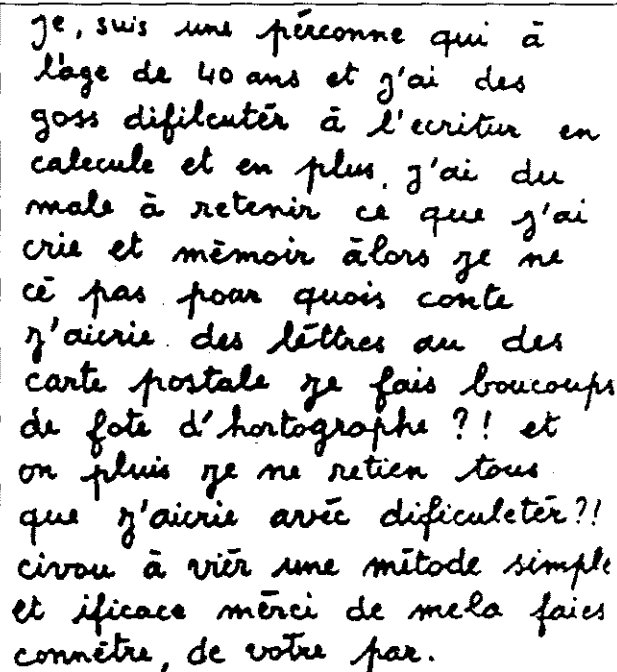 je, suis une pérconne qui à
l'age de 40 ans et j'ai des
goss difilcutér à l'ecritur en
calecule et en plus, j'ai du
male à retenir ce que j'ai
crie et mémoir àlors je ne
cé pas pour quois conte
j'aicrie des léttres au des
carte postale je fais boucoups
de fote d'hortographe ?! et
on pluis je ne retien tous
que j'aicrie avéc dificuletér ?!
civou à viér une métode simple
et ificace mérci de mela faies
connétre, de votre par.